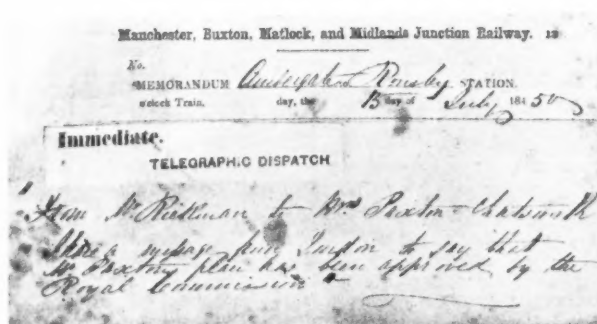 Manchester, Buxton, Matlock, and Midlands Junction Railway. 12
No.
MEMORANDUM Rowsley STATION.
o'clock Train. day, the 15 day of July 184 50
Immediate.
TELEGRAPHIC DISPATCH
From Mr Rickman to Mrs Paxton - Chatsworth
a message from London to say that
Mr Paxtons plan has been approved by the
Royal Commission